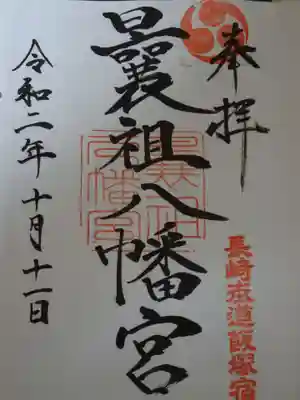 奉拝
曩祖八幡宮
令和二年十月十一日
長崎街道飯塚宿